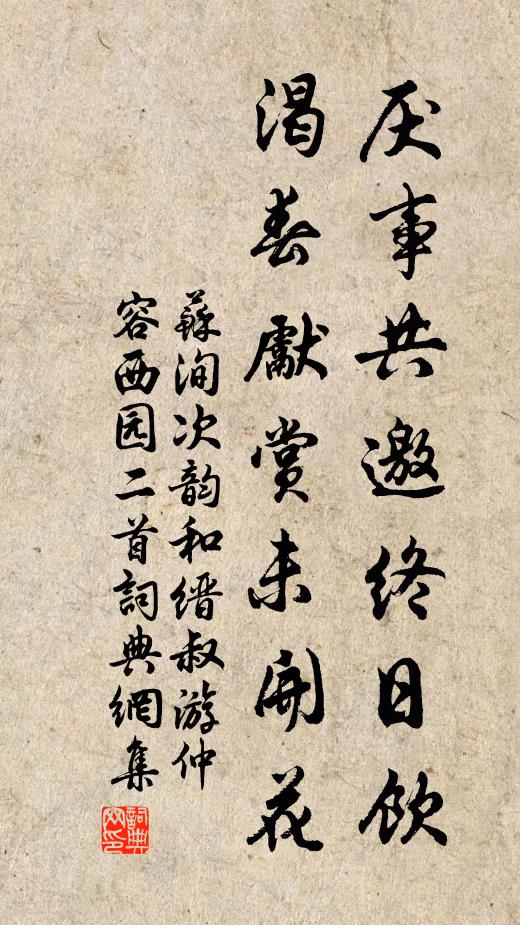 厌事共邀终日飲
渴春獻赏未開花
蘇洵次韵和缙叔游仲
容西园二首詞典網集
詞典
网印